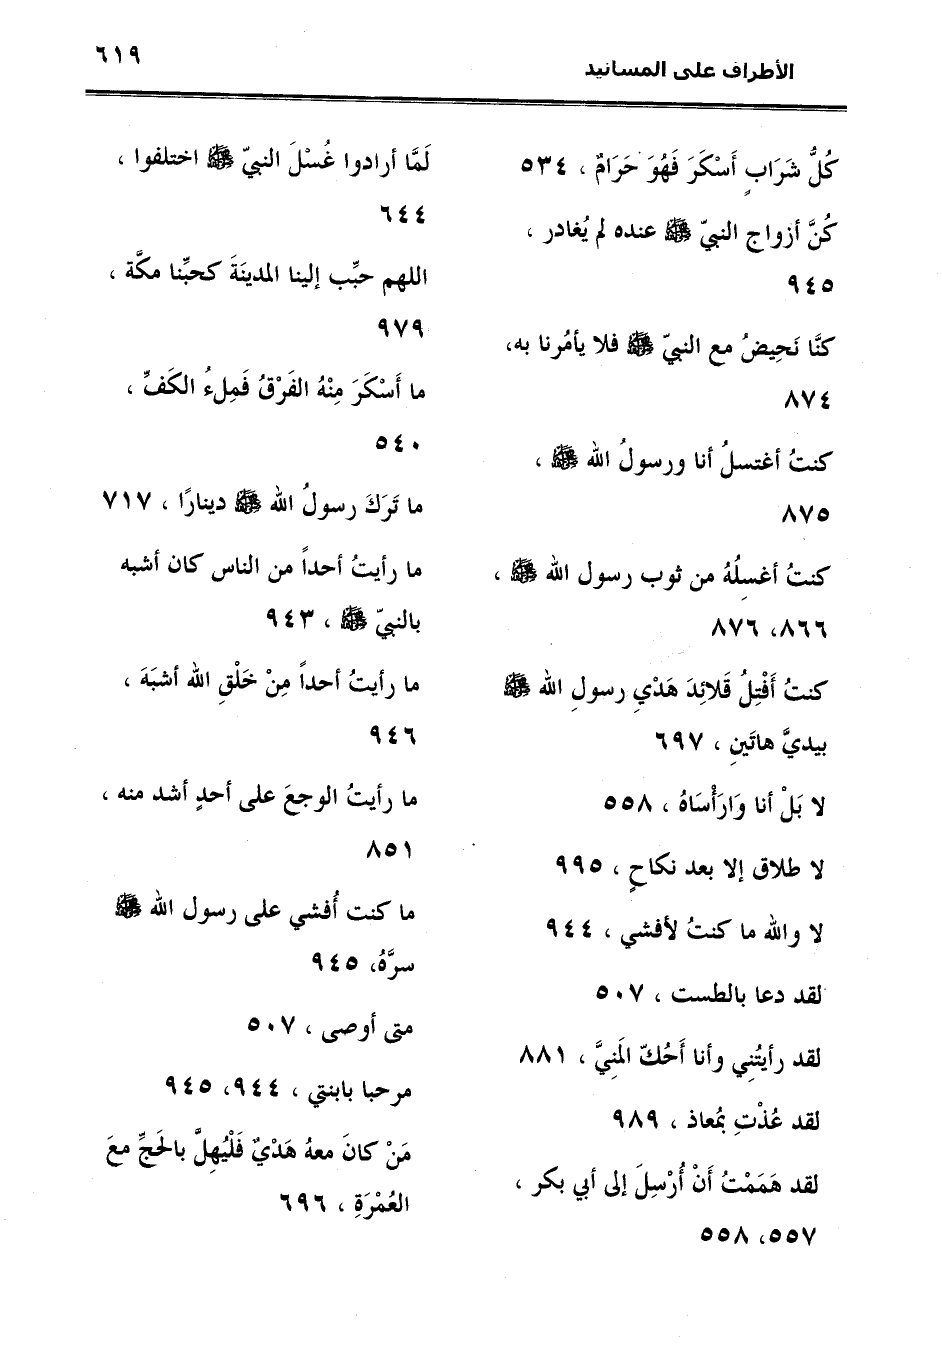 الأطراف على المسانيد
٦١٩
كُلُّ شَرَابٍ أَسْكَرَ فَهُوَ حَرَامٌ ، ٥٣٤
كُنَّ أزواج النبيّ ﷺ عنده لم يُغادر ،
٩٤٥
كنَّا نَحِيضُ مع النبيّ ﷺ فلا يأمُرنا به،
٨٧٤
كنتُ أغتسلُ أنا ورسولُ الله ﷺ ،
٨٧٥
كنتُ أغسِلُهُ من ثوب رسول الله ﷺ ،
٨٦٦، ٨٧٦
كنتُ أَفْتِلُ قَلائِدَ هَدْيِ رسولِ الله ﷺ
بيديَّ هاتَينِ ، ٦٩٧
لا بَلْ أنا وَارَأْسَاهُ ، ٥٥٨
لا طلاق إلا بعد نكاحٍ ، ٩٩٥
لا والله ما كنتُ لأفشي ، ٩٤٤
لقد دعا بالطست ، ٥٠٧
لقد رأيتُنِي وأنا أَحُكّ المَنِيَّ ، ٨٨١
لقد عُذْتِ بمُعاذ ، ٩٨٩
لقد هَمَمْتُ أَنْ أُرْسِلَ إلى أبي بكر ،
٥٥٧، ٥٥٨
لَمَّا أرادوا غُسْلَ النبيّ ﷺ اختلفوا ،
٦٤٤
اللهم حبِّب إلينا المدينَةَ كحبِّنا مكَّة ،
٩٧٩
ما أَسْكَرَ مِنْهُ الفَرْقُ فَمِلءُ الكَفِّ ،
٥٤٠
ما تَرَكَ رسولُ الله ﷺ دينارًا ، ٧١٧
ما رأيتُ أحداً من الناس كان أشبه
بالنبيّ ﷺ ، ٩٤٣
ما رأيتُ أحداً مِنْ خَلْقِ الله أشبَهَ ،
٩٤٦
ما رأيتُ الوجعَ على أحدٍ أشد منه ،
٨٥١
ما كنت أُفشي على رسول الله ﷺ
سرَّهُ، ٩٤٥
متى أوصى ، ٥٠٧
مرحبا بابنتي ، ٩٤٤، ٩٤٥
مَنْ كانَ معهُ هَدْيٌ فَلْيُهِلَّ بالحَجِّ معَ
العُمْرَةِ ، ٦٩٦